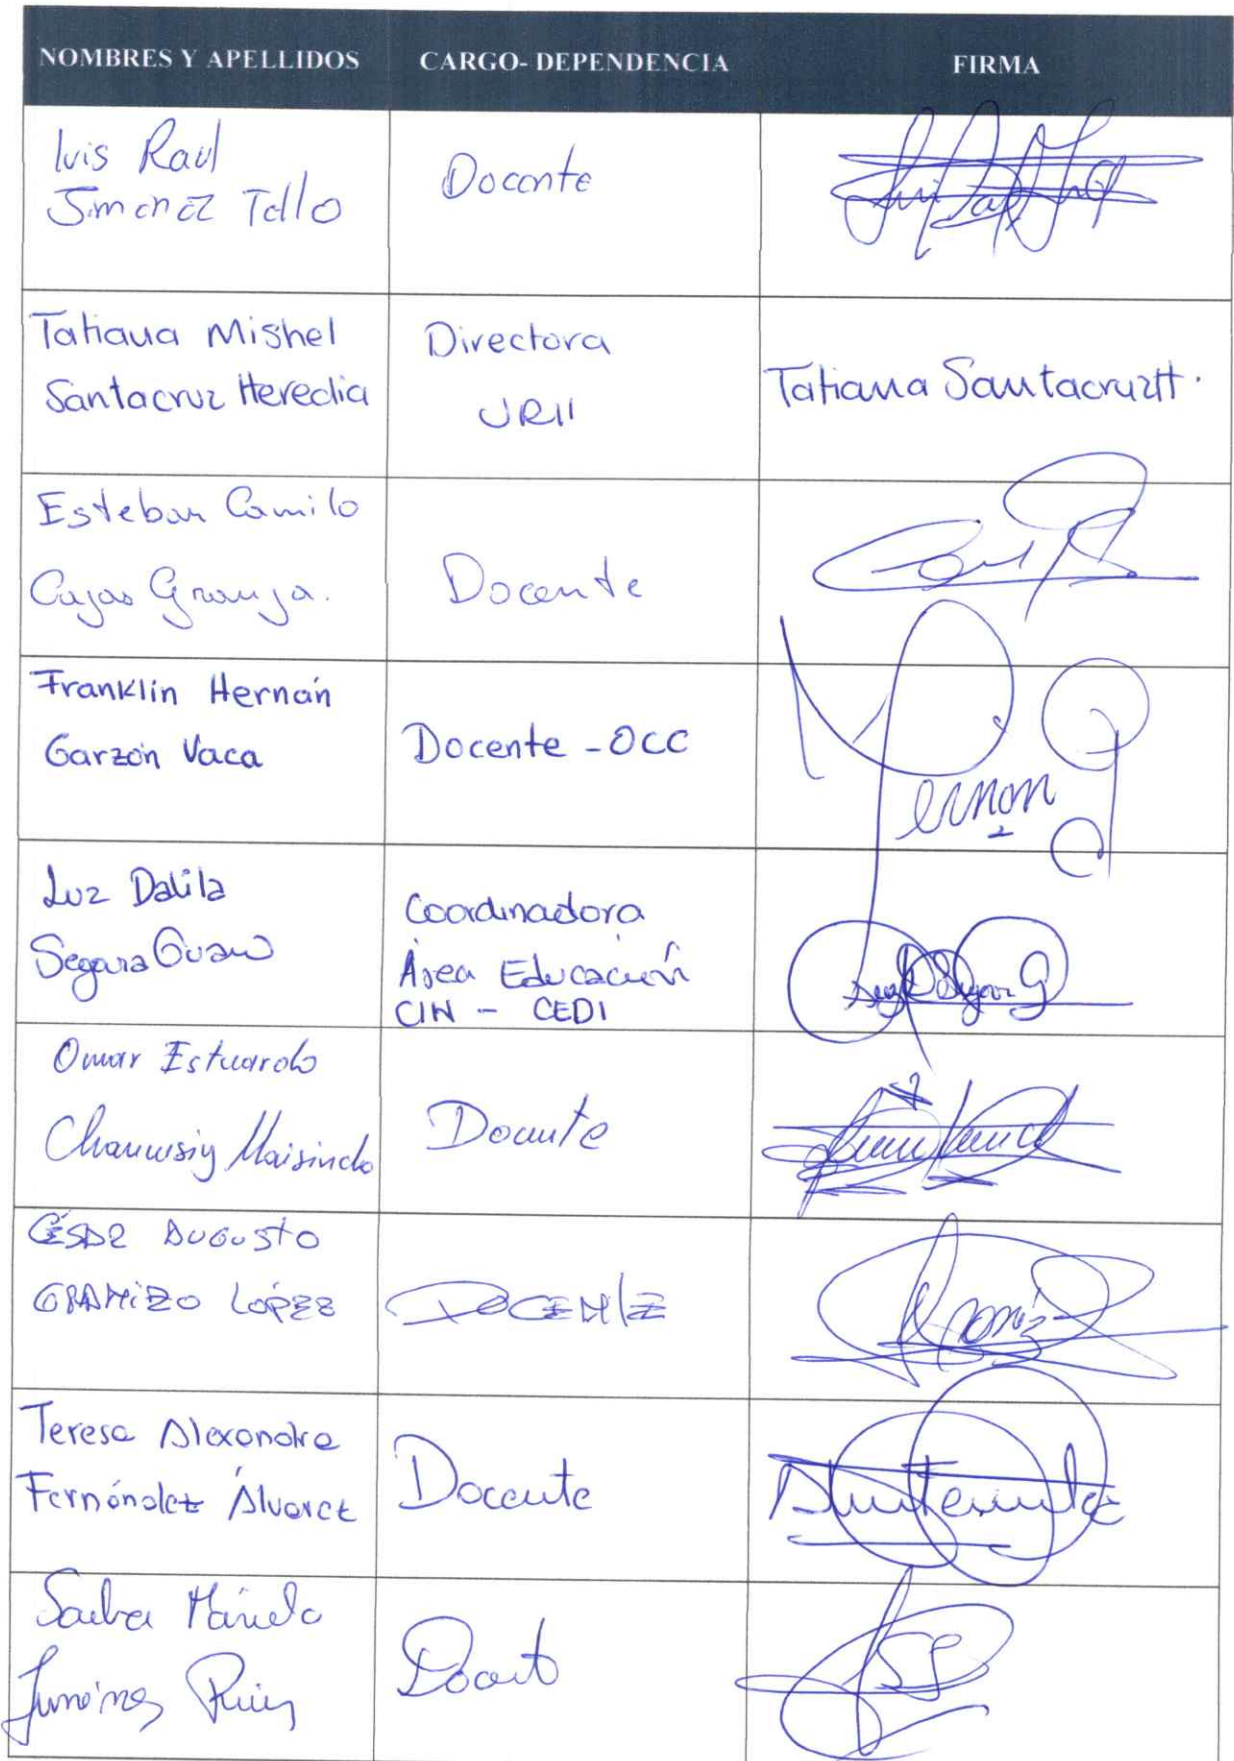 NOMBRES Y APELLIDOS CARGO- DEPENDENCIA FIRMA
Luis Raul
Jimenez Tello
Docente
Tatiana Mishel
Santacruz Heredia
Directora
URII
Tatiana Santacruz H.
Esteban Camilo
Cajas Granja.
Docente
Franklin Hernán
Garzón Vaca
Docente - OCC
Luz Dalila
Segarra
Coordinadora
Área Educación
CIN - CEDI
Omar Estuardo
Docente
César Augusto
GRANIZO LÓPEZ
DOCENTE
Teresa Alexandra
Fernández Álvarez
Docente
Mariela
Jiménez Ruiz
Docente